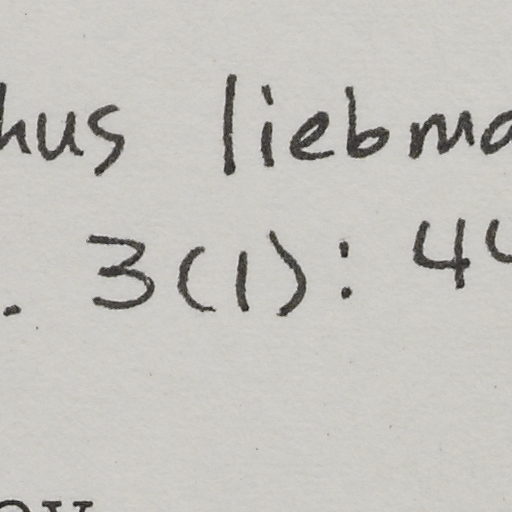 hus liebma
. 3(1): 44